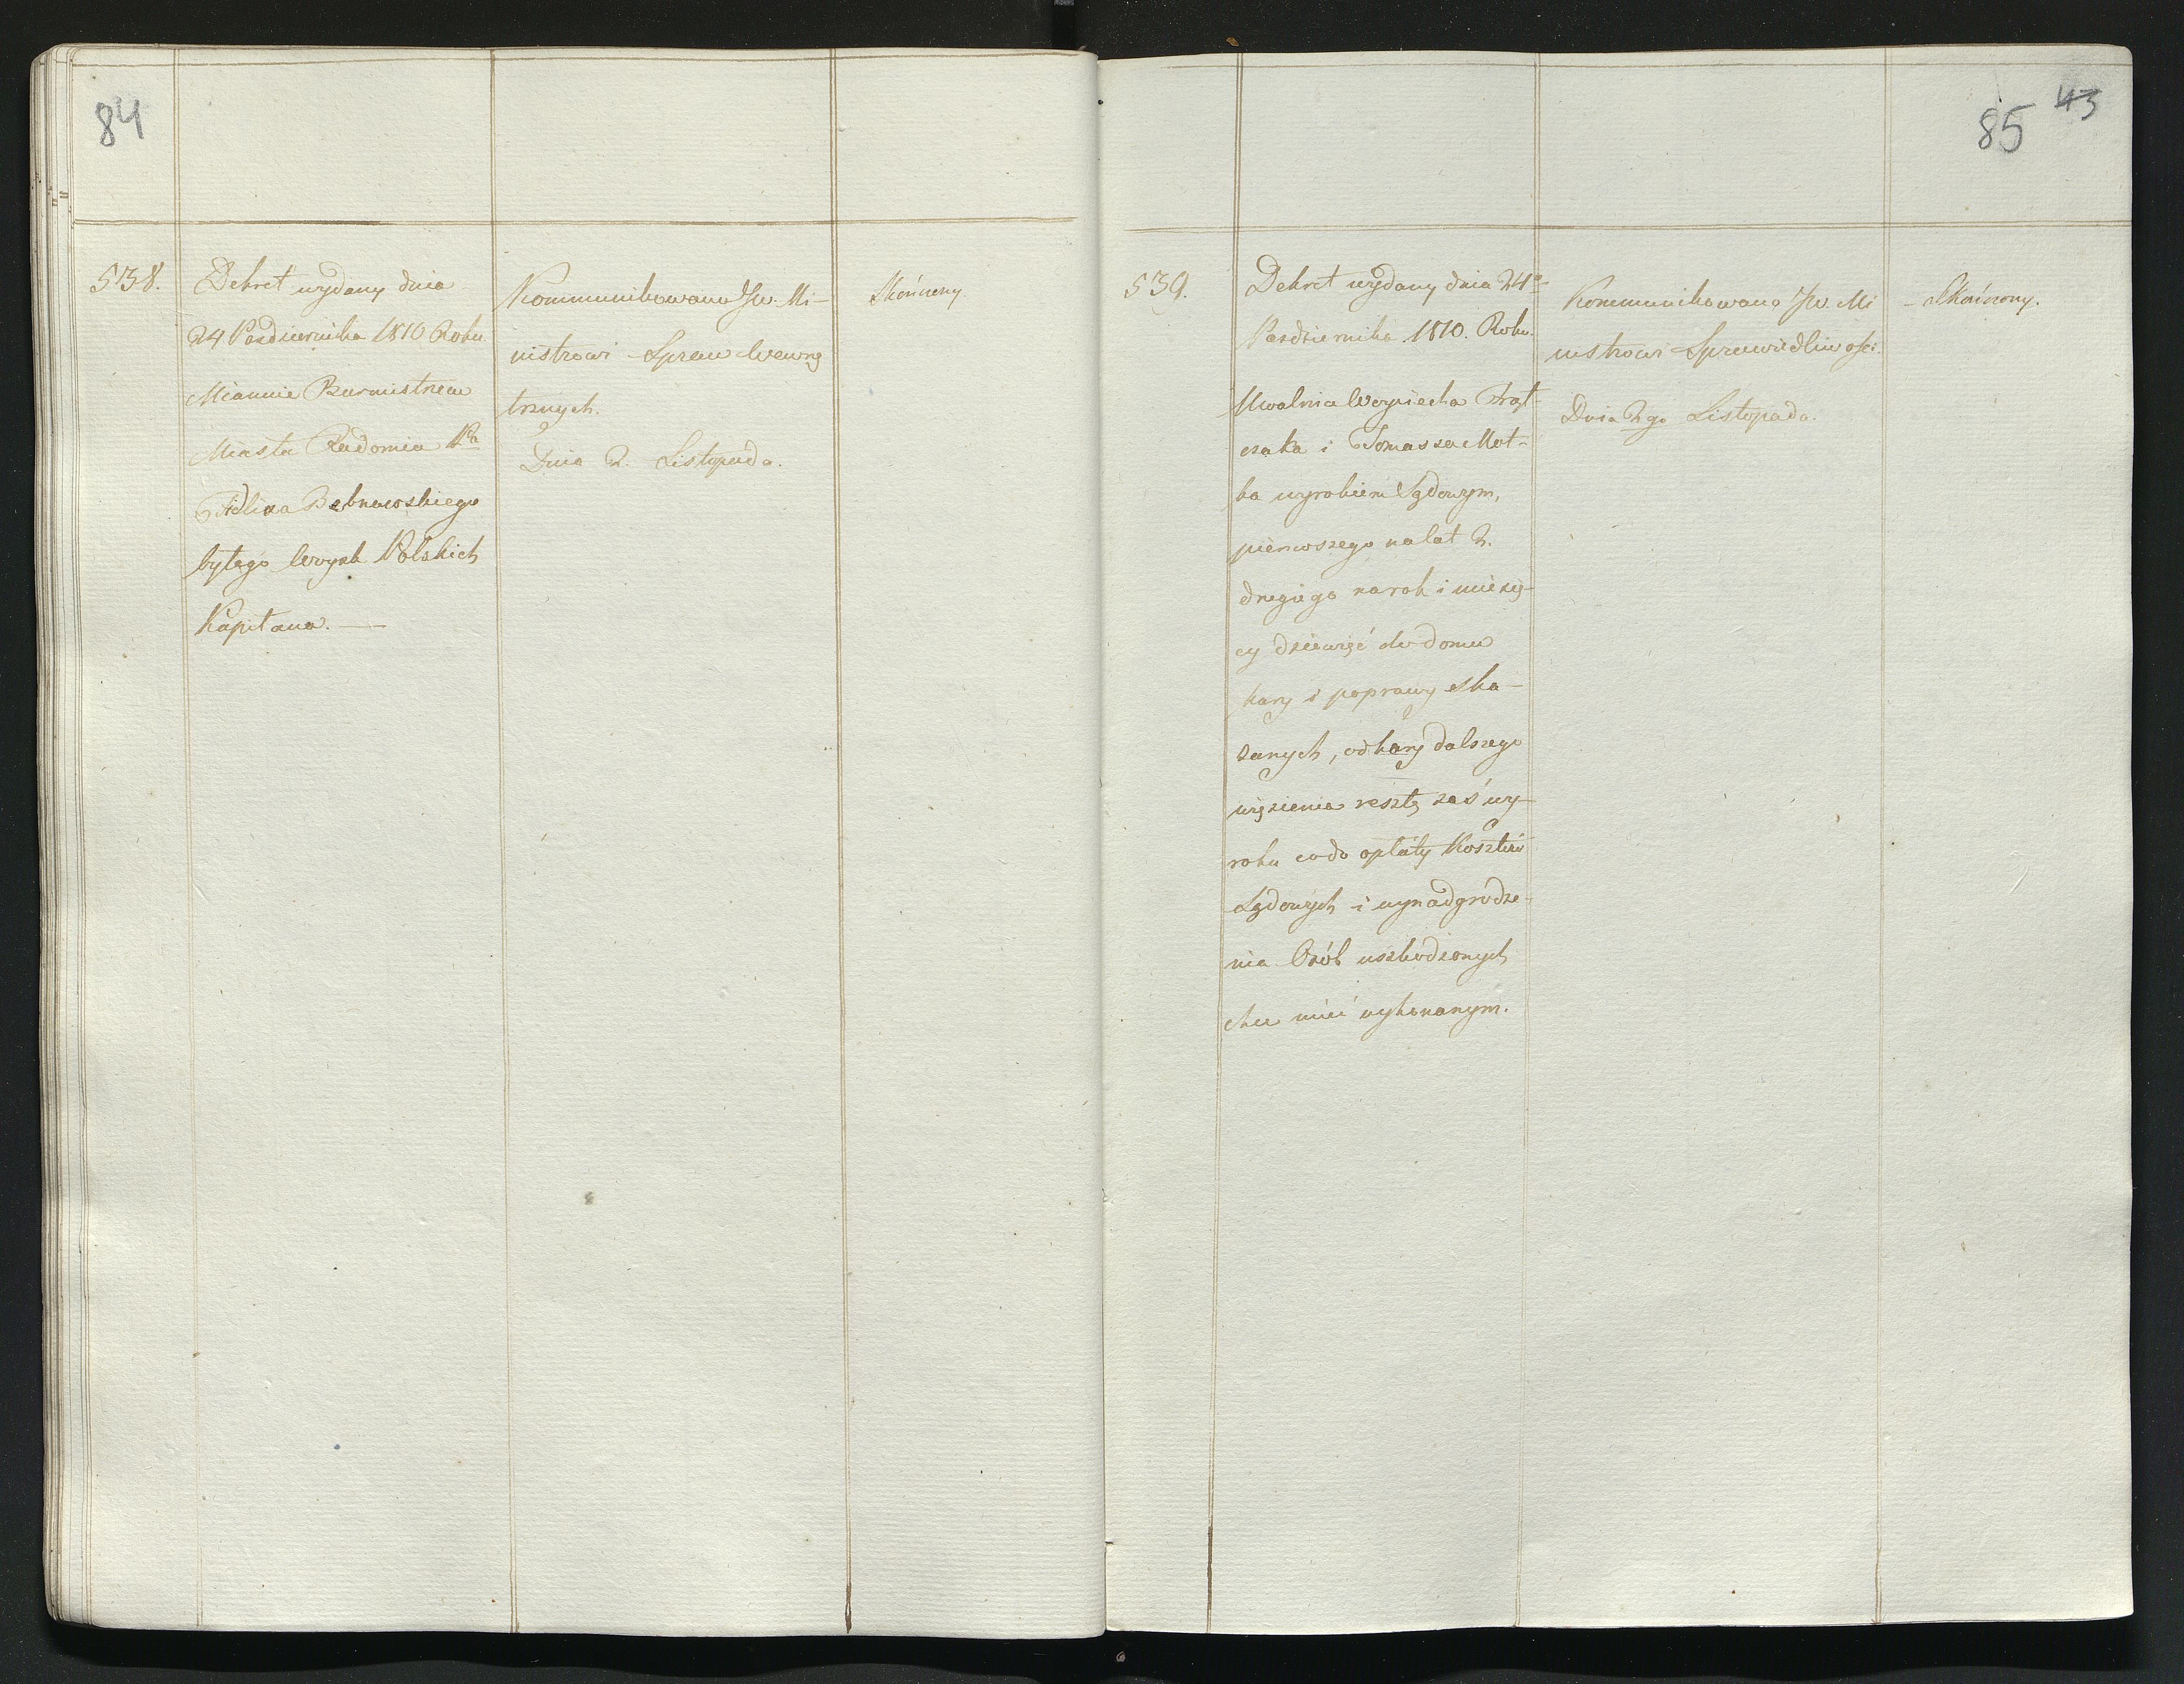 84
538.
Dekret wydany dnia
24 Pazdziernika 1810 Roku
Mianuie Burmistrzem
Miasta Radomia Pa
Felixa Bebnowskiego
byłego Woysk Polskich
Kapitana. —
Kommunikowano JW. Mi-
nistrowi Spraw Wewnę
trznych.
Dnia 2. Listopada.
Skończony
85 43
539.
Dekret wydany dnia 24o
Pazdziernika 1810. Roku.
Uwalnia Woyciecha
czaka i Tomasza Mot-
ka wyrokiem Sądowym,
pierwszego na lat 2.
drugiego na rok i miesię-
cy dziewięć do domu
kary i poprawy ska-
zanych, od kary dalszego
więzienia resztę zaś wy-
roku co do opłaty Kosztów
Sądowych i wynadgrodze-
nia Osób uszkodzonych
chce mieć wykonanym.
Kommunikowano JW. Mi
nistrowi Sprawiedliwości.
Dnia 2go Listopada.
- Skończony.